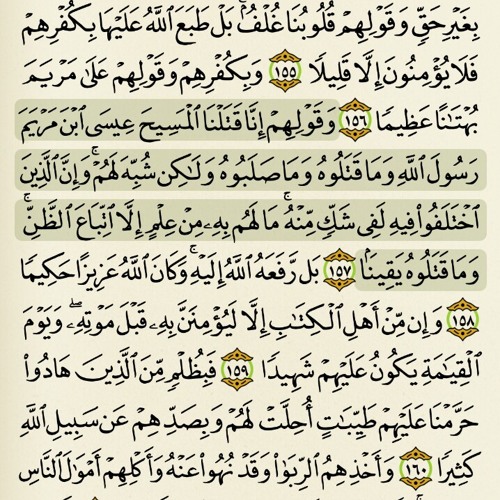 بِغَيْرِ حَقٍّ وَقَوْلِهِمْ قُلُوبُنَا غُلْفٌۢ ۚ بَلْ طَبَعَ ٱللَّهُ عَلَيْهَا بِكُفْرِهِمْ
فَلَا يُؤْمِنُونَ إِلَّا قَلِيلًا ١٥٥ وَبِكُفْرِهِمْ وَقَوْلِهِمْ عَلَىٰ مَرْيَمَ
بُهْتَٰنًا عَظِيمًا ١٥٦ وَقَوْلِهِمْ إِنَّا قَتَلْنَا ٱلْمَسِيحَ عِيسَى ٱبْنَ مَرْيَمَ
رَسُولَ ٱللَّهِ وَمَا قَتَلُوهُ وَمَا صَلَبُوهُ وَلَٰكِن شُبِّهَ لَهُمْ ۚ وَإِنَّ ٱلَّذِينَ
ٱخْتَلَفُوا۟ فِيهِ لَفِى شَكٍّ مِّنْهُ ۚ مَا لَهُم بِهِۦ مِنْ عِلْمٍ إِلَّا ٱتِّبَاعَ ٱلظَّنِّ ۚ
وَمَا قَتَلُوهُ يَقِينًۢا ١٥٧ بَل رَّفَعَهُ ٱللَّهُ إِلَيْهِ ۚ وَكَانَ ٱللَّهُ عَزِيزًا حَكِيمًا
١٥٨ وَإِن مِّنْ أَهْلِ ٱلْكِتَٰبِ إِلَّا لَيُؤْمِنَنَّ بِهِۦ قَبْلَ مَوْتِهِۦ ۖ وَيَوْمَ
ٱلْقِيَٰمَةِ يَكُونُ عَلَيْهِمْ شَهِيدًا ١٥٩ فَبِظُلْمٍ مِّنَ ٱلَّذِينَ هَادُوا۟
حَرَّمْنَا عَلَيْهِمْ طَيِّبَٰتٍ أُحِلَّتْ لَهُمْ وَبِصَدِّهِمْ عَن سَبِيلِ ٱللَّهِ
كَثِيرًا ١٦٠ وَأَخْذِهِمُ ٱلرِّبَوٰا۟ وَقَدْ نُهُوا۟ عَنْهُ وَأَكْلِهِمْ أَمْوَٰلَ ٱلنَّاسِ